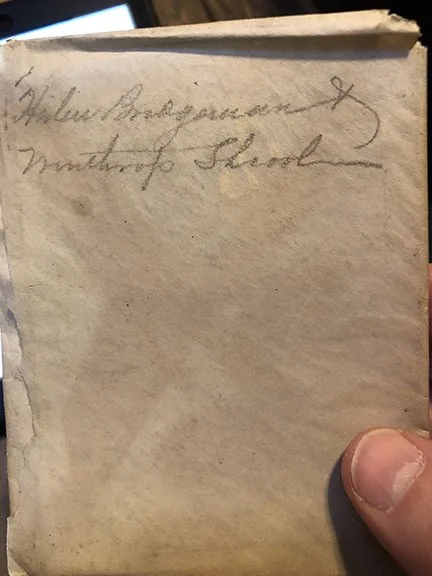 Helen Bridgeman &
Winthrop Shoole